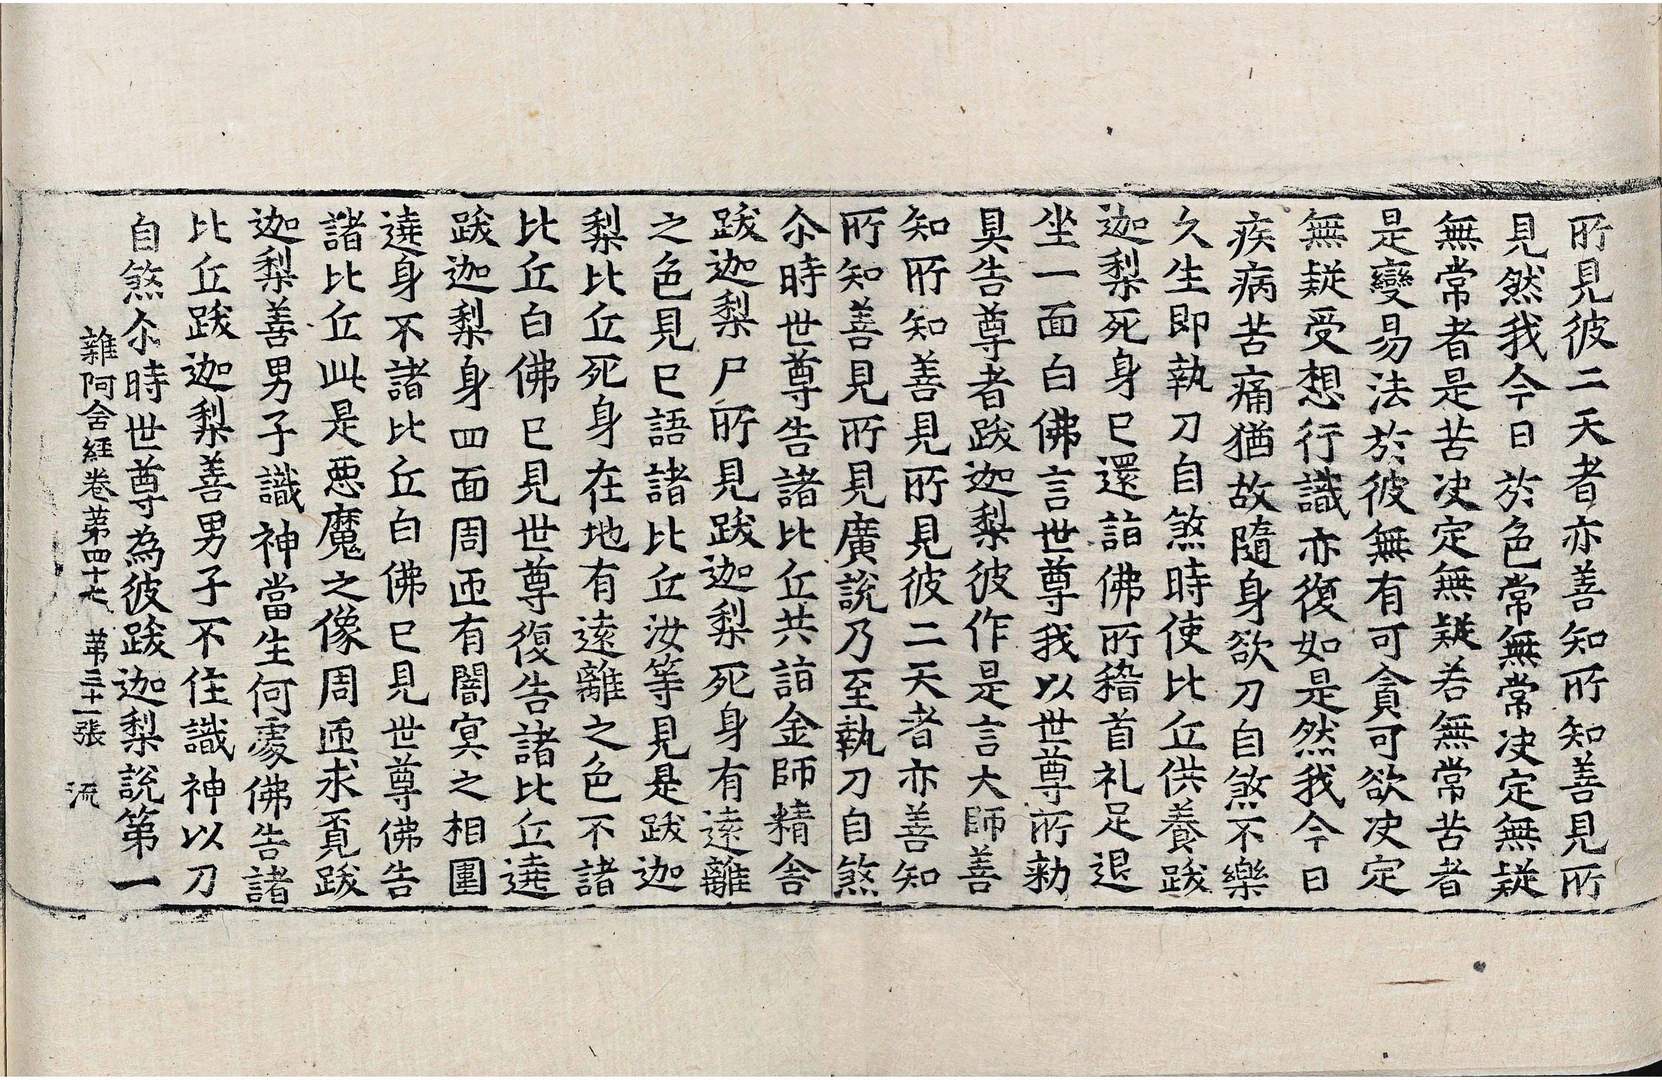 所見彼二天者亦善知所知善見所
見然我今日於色常無常决定無疑
無常者是苦决定無疑若無常苦者
是變易法於彼無有可貪可欲决定
無疑受想行識亦復如是然我今日
疾病苦痛猶故隨身欲刀自煞不樂
久生即執刀自煞時使比丘供養跋
迦梨死身已還詣佛所稽首礼足退
坐一面白佛言世尊我以世尊所勑
具告尊者跋迦梨彼作是言大師善
知所知善見所見彼二天者亦善知
所知善見所見廣說乃至執刀自煞
尒時世尊告諸比丘共詣金師精舍
跋迦梨尸所見跋迦梨死身有遠離
之色見已語諸比丘汝等見是跋迦
梨比丘死身在地有遠離之色不諸
比丘白佛已見世尊復告諸比丘遶
跋迦梨身四面周匝有闇冥之相圍
遶身不諸比丘白佛已見世尊佛告
諸比丘此是惡魔之像周匝求覓跋
迦梨善男子識神當生何處佛告諸
比丘跋迦梨善男子不住識神以刀
自煞尒時世尊為彼跋迦梨說第一
雜阿含經卷第四十七 第三十一張 流